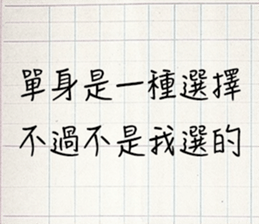 單身是一種選擇
不過不是我選的